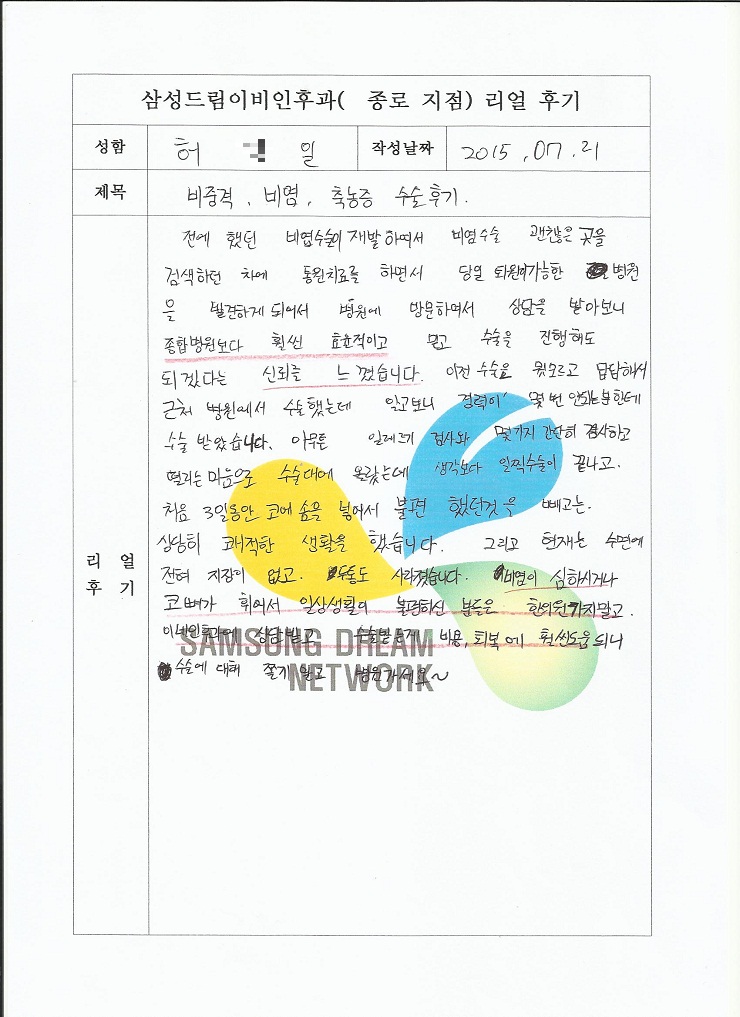 삼성드림이비인후과( 종로 지점) 리얼 후기
성함 허 일 작성날짜 2015.07.21
제목 비중격, 비염, 축농증 수술후기.
전에 했던 비염수술이 재발하여서 비염수술 괜찮은 곳을
검색하던 차에 통원치료를 하면서 당일 퇴원이가능한 병원
을 발견하게 되어서 병원에 방문하여서 상담을 받아보니
종합병원보다 훨씬 효율적이고 믿고 수술을 진행해도
되겠다는 신뢰를 느꼈습니다. 이전 수술을 뭣모르고 답답해서
근처 병원에서 수술했는데 알고보니 경력이 몇 번 안되는분한테
수술 받았습니다. 아무튼 일레르기 검사와 몇가지 간단히 검사하고
떨리는 마음으로 수술대에 올랐는데 생각보다 일찍수술이 끝나고.
처음 3일동안 코에 솜을 넣어서 불편 했던것을 빼고는.
상당히 쾌적한 생활을 했습니다. 그리고 현재는 수면에
전혀 지장이 없고. 두통도 사라졌습니다. 비염이 심하시거나
코뼈가 휘어서 일상생활이 불편하신 분들은 한의원가지말고.
이비인후과에 상담받고 수술받는게 비용, 회복에 훨씬도움되니
수술에 대해 쫄지 말고 병원가세요~
리 얼
후 기
SAMSUNG DREAM
NETWORK